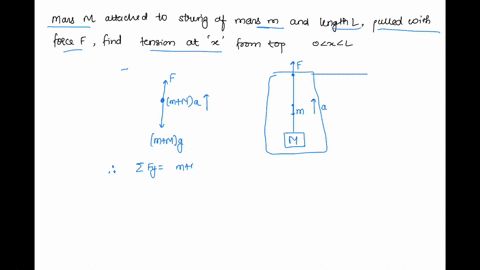 mass M attached to string of mass m and length L, pulled with
force F, find tension at 'x' from top 0<x<L
F
F
(m+M)a
m
a
(m+M)g
M
∴ ΣFy = m+